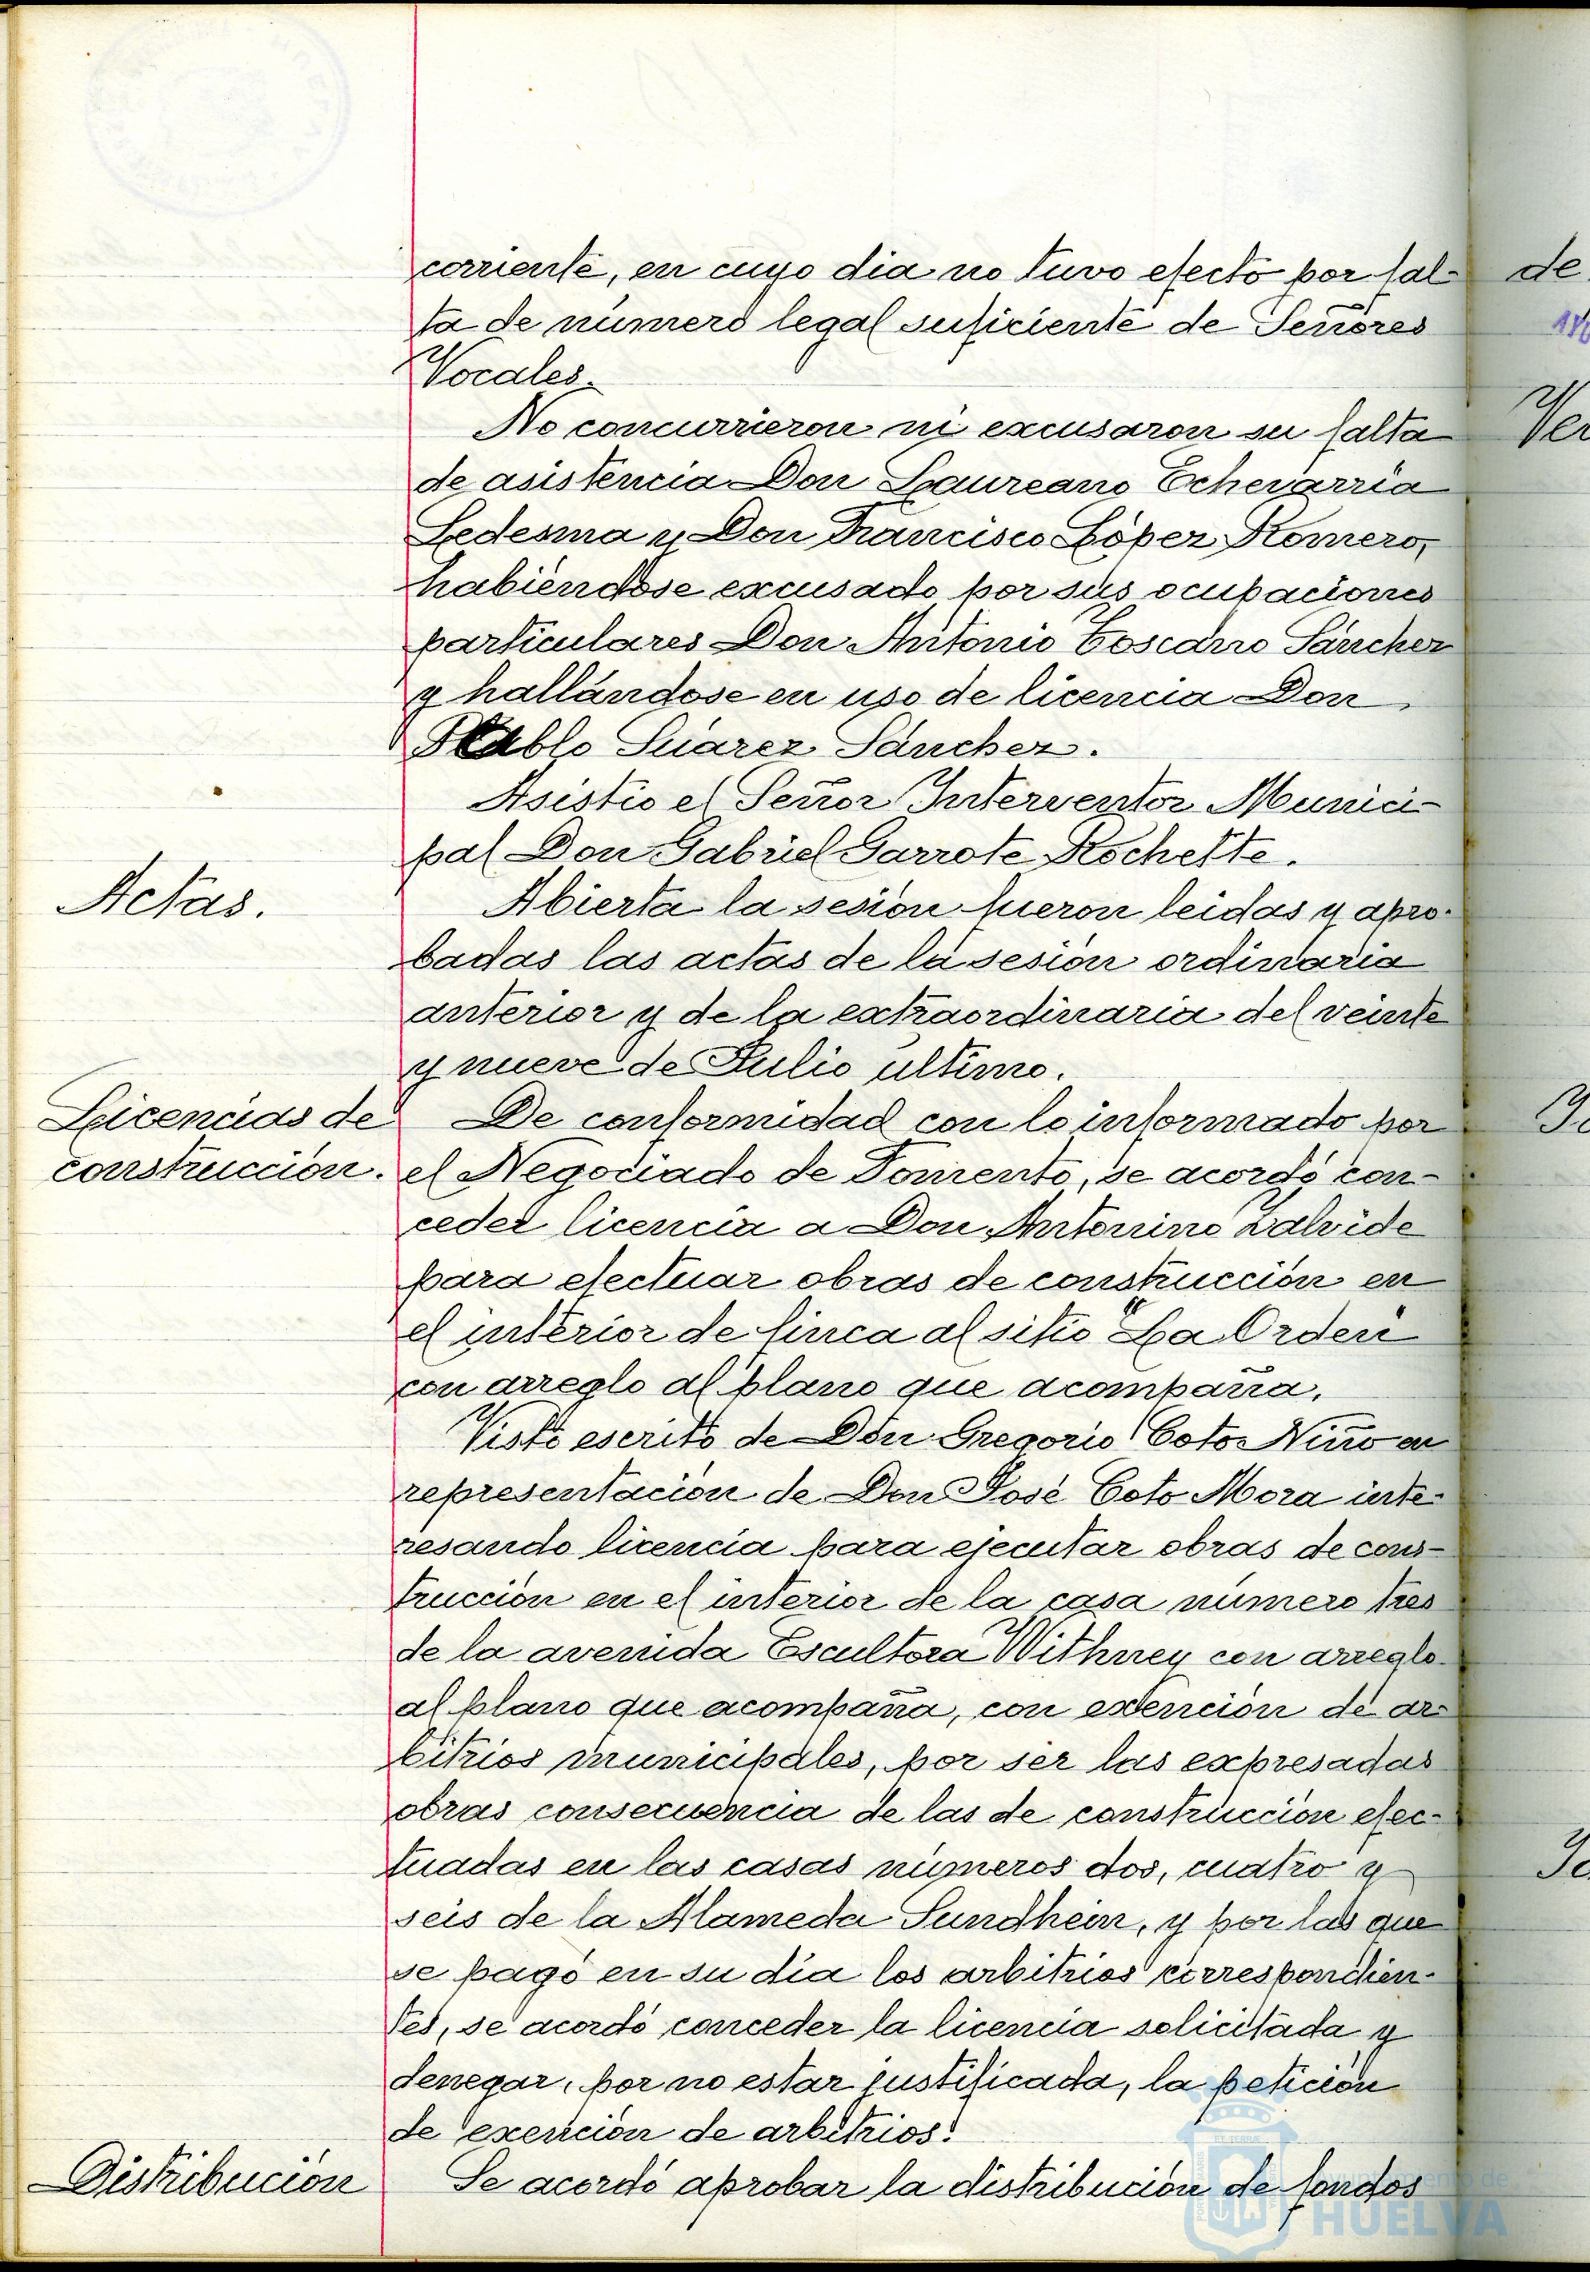 corriente, en cuyo dia no tuvo efecto por fal-
ta de número legal suficiente de Señores
Vocales.
No concurrieron ni excusaron su falta
de asistencia Don Laureano Echevarría
Ledesma y Don Francisco López Romero,
habiendose excusado por sus ocupaciones
particulares Don Antonio Toscano Sánchez
y hallándose en uso de licencia Don
Pablo Suárez Sánchez.
Asistio el Señor Interventor Munici-
pal Don Gabriel Garrote Rochette.
Actas.
Abierta la sesión fueron leidas y apro-
badas las actas de la sesión ordinaria
anterior y de la extraordinaria del veinte
y nueve de Julio último.
Licencias de
construcción.
De conformidad con lo informado por
el Negociado de Fomento, se acordó con-
ceder licencia a Don Antonino Zalvide
para efectuar obras de construcción en
el interior de finca al sitio "La Orden"
con arreglo al plano que acompaña.
Visto escrito de Don Gregorio Coto Niño en
representación de Don José Coto Mora inte-
resando licencia para ejecutar obras de cons-
trucción en el interior de la casa número tres
de la avenida Escultora Withney con arreglo
al plano que acompaña, con exención de ar-
bitrios municipales, por ser las expresadas
obras consecuencia de las de construcción efec-
tuadas en las casas números dos, cuatro y
seis de la Alameda Sundhein, y por las que
se pagó en su día los arbitrios correspondien-
tes, se acordó conceder la licencia solicitada y
denegar, por no estar justificada, la petición
de exención de arbitrios.
Distribución
Se acordó aprobar la distribución de fondos
de
Ver
Ayuntamiento de
HUELVA